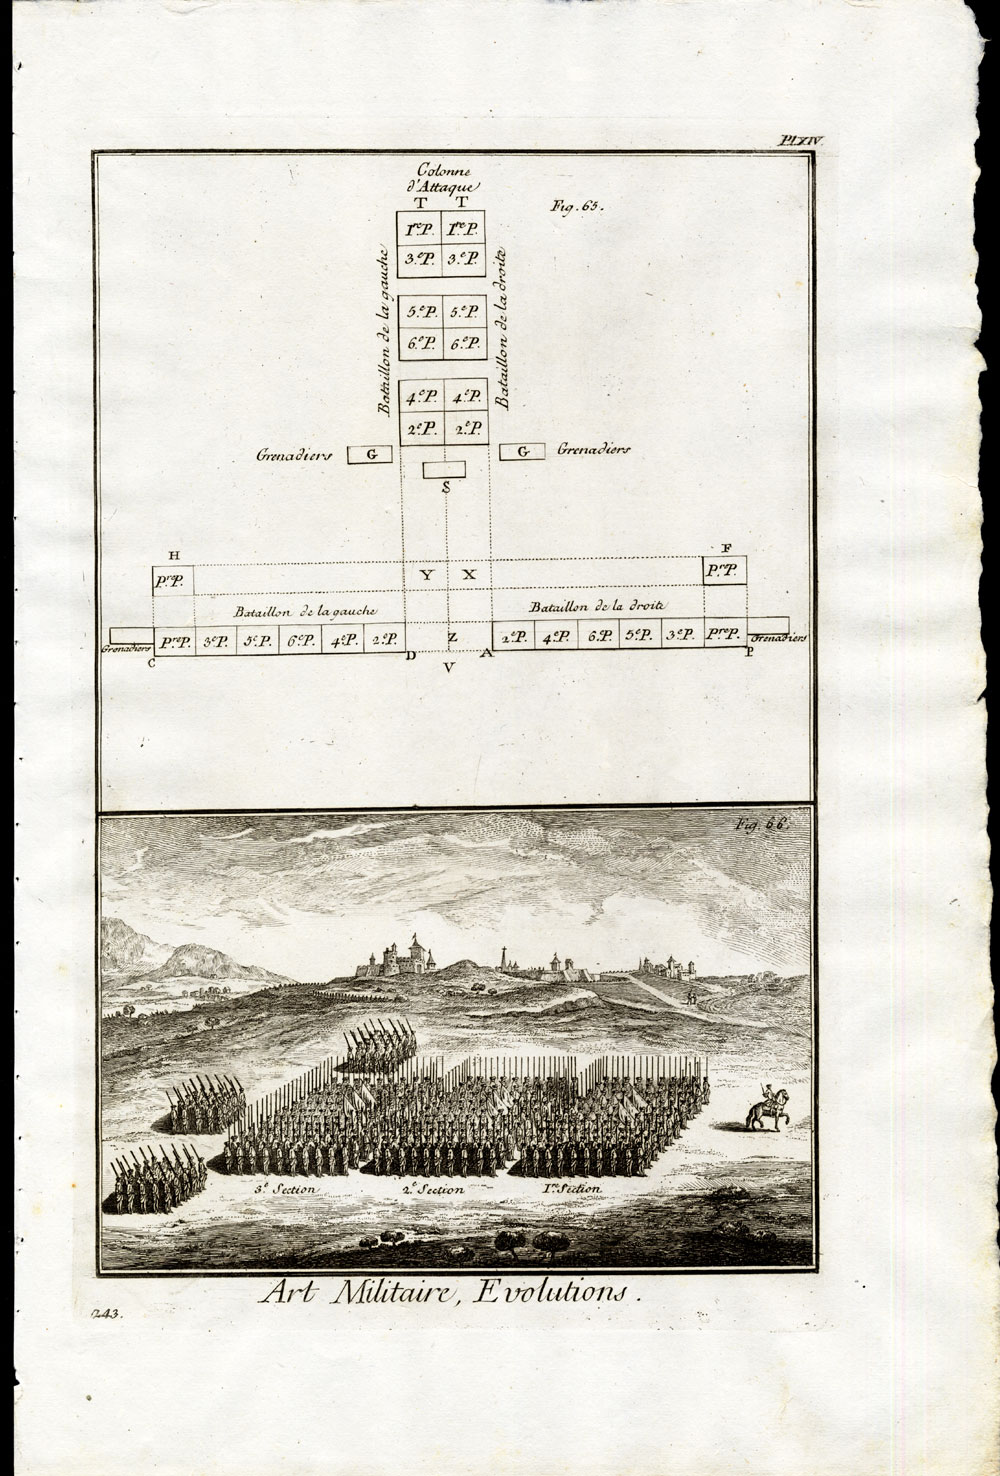 Pl. XIV.
Colonne
d'Attaque
T T
Fig. 65.
1re P. 1re P.
3.e P. 3.e P.
5.e P. 5.e P.
6.e P. 6.e P.
4.e P. 4.e P.
2.e P. 2.e P.
Bataillon de la gauche
Bataillon de la droite
Grenadiers G G Grenadiers
S
H F
Pre P. Y X Pre P.
Bataillon de la gauche Bataillon de la droite
Grenadiers Pre P. 3e P. 5e P. 6e P. 4e P. 2e P. Z 2e P. 4e P. 6e P. 5e P. 3e P. Pre P. Grenadiers
C D A P
V
Fig. 66.
3.e Section 2.e Section 1re Section
Art Militaire, Evolutions.
243.